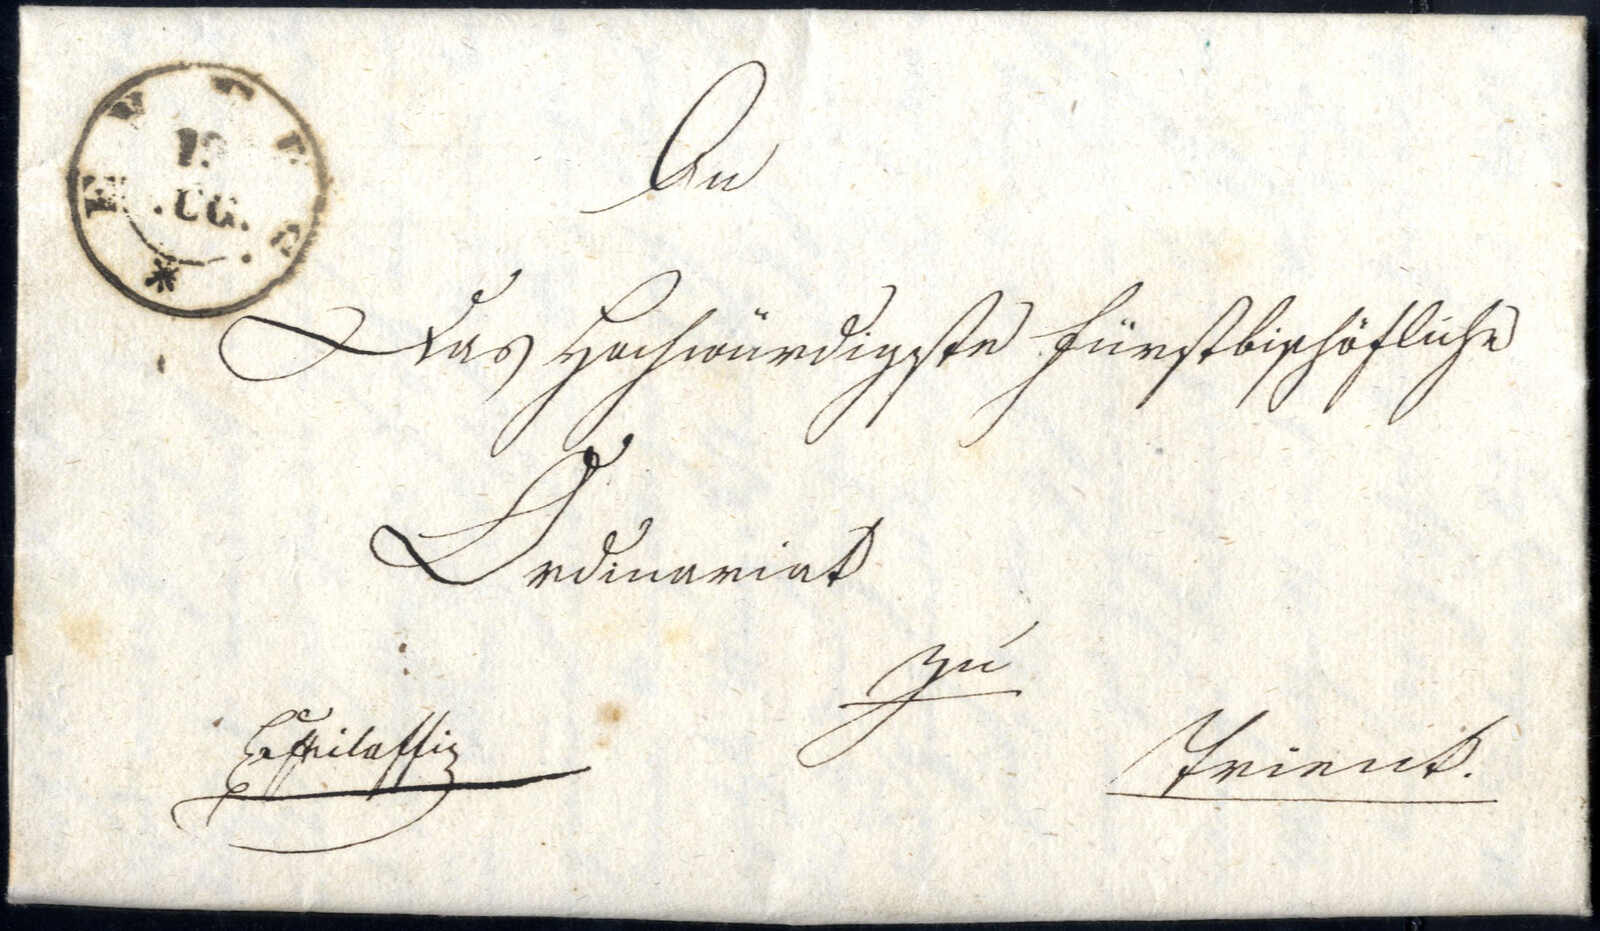 19
.UG.
An
Das Hochwürdigste fürstbischöfliche
Ordinariat
zu
Trient.